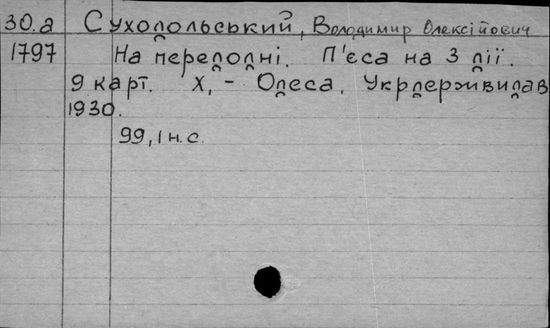 30.а Сухопольський, Володимир Олексійович
1797 На передодні. П'єса на 3 дії.
9 карт. Х, – Одеса. Укрдержвидав
1930.
99, 1 н. с.